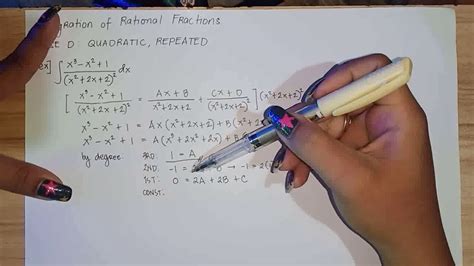 gration of Rational Fractions
E D QUADRATIC, REPEATED
ex] ∫ x³ - x² + 1 / (x² + 2x + 2)² dx
[ x³ - x² + 1 / (x² + 2x + 2)² = Ax + B / x² + 2x + 2 + Cx + D / (x² + 2x + 2)² ] (x² + 2x + 2)²
x³ - x² + 1 = Ax (x² + 2x + 2) + B (x² +
x³ - x² + 1 = A (x³ + 2x² + 2x) + B (
by degree 3RD: 1 = A
2ND: -1 = → -1 = 2(
1ST: 0 = 2A + 2B + C
CONST: